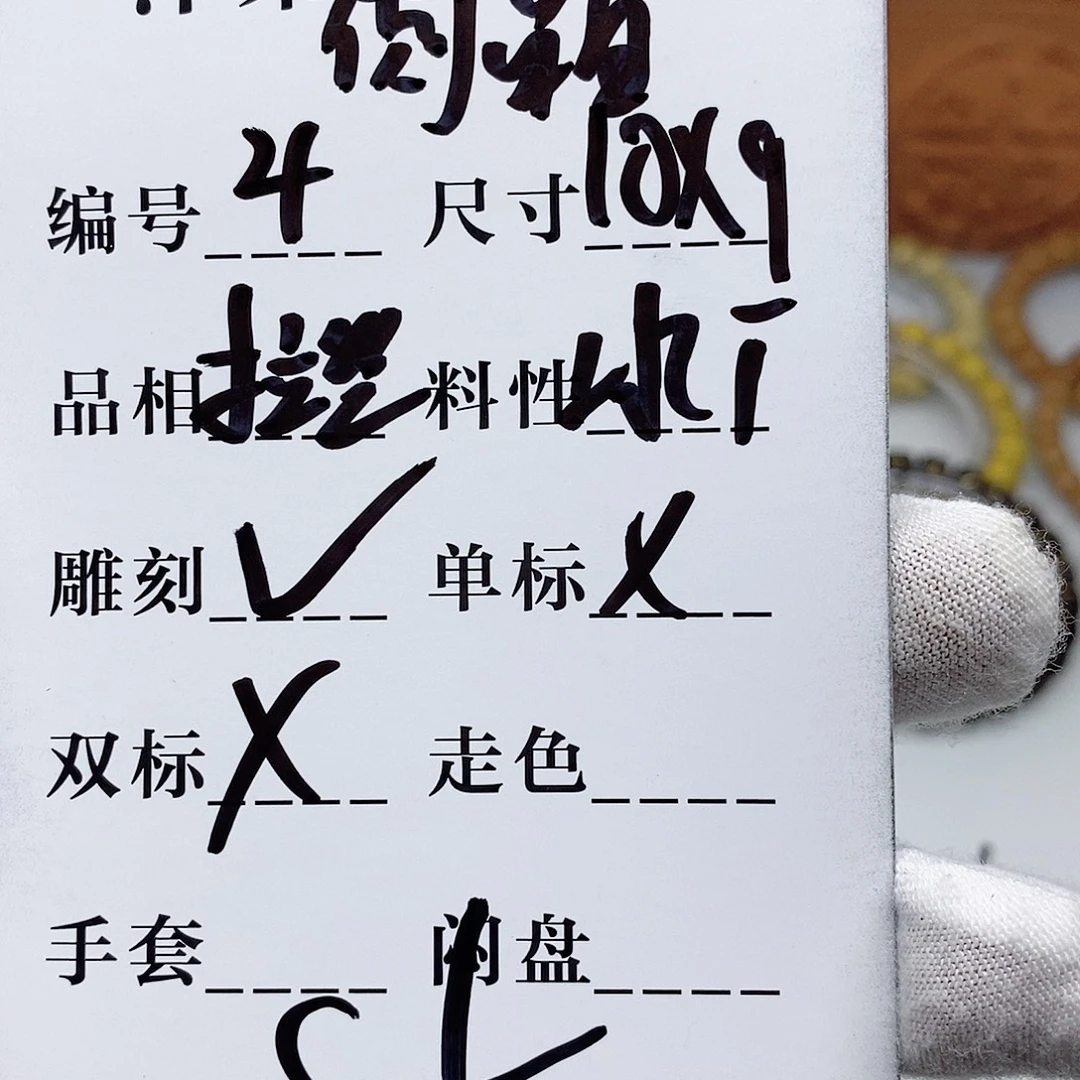 编号 4 尺寸 10x9
品相 料性
雕刻 ✓ 单标 X
双标 X 走色
手套 闲盘